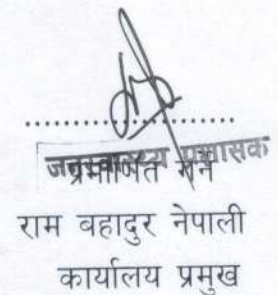 जनस्वास्थ्य प्रशासक
प्रमाणित गर्ने
राम बहादुर नेपाली
कार्यालय प्रमुख